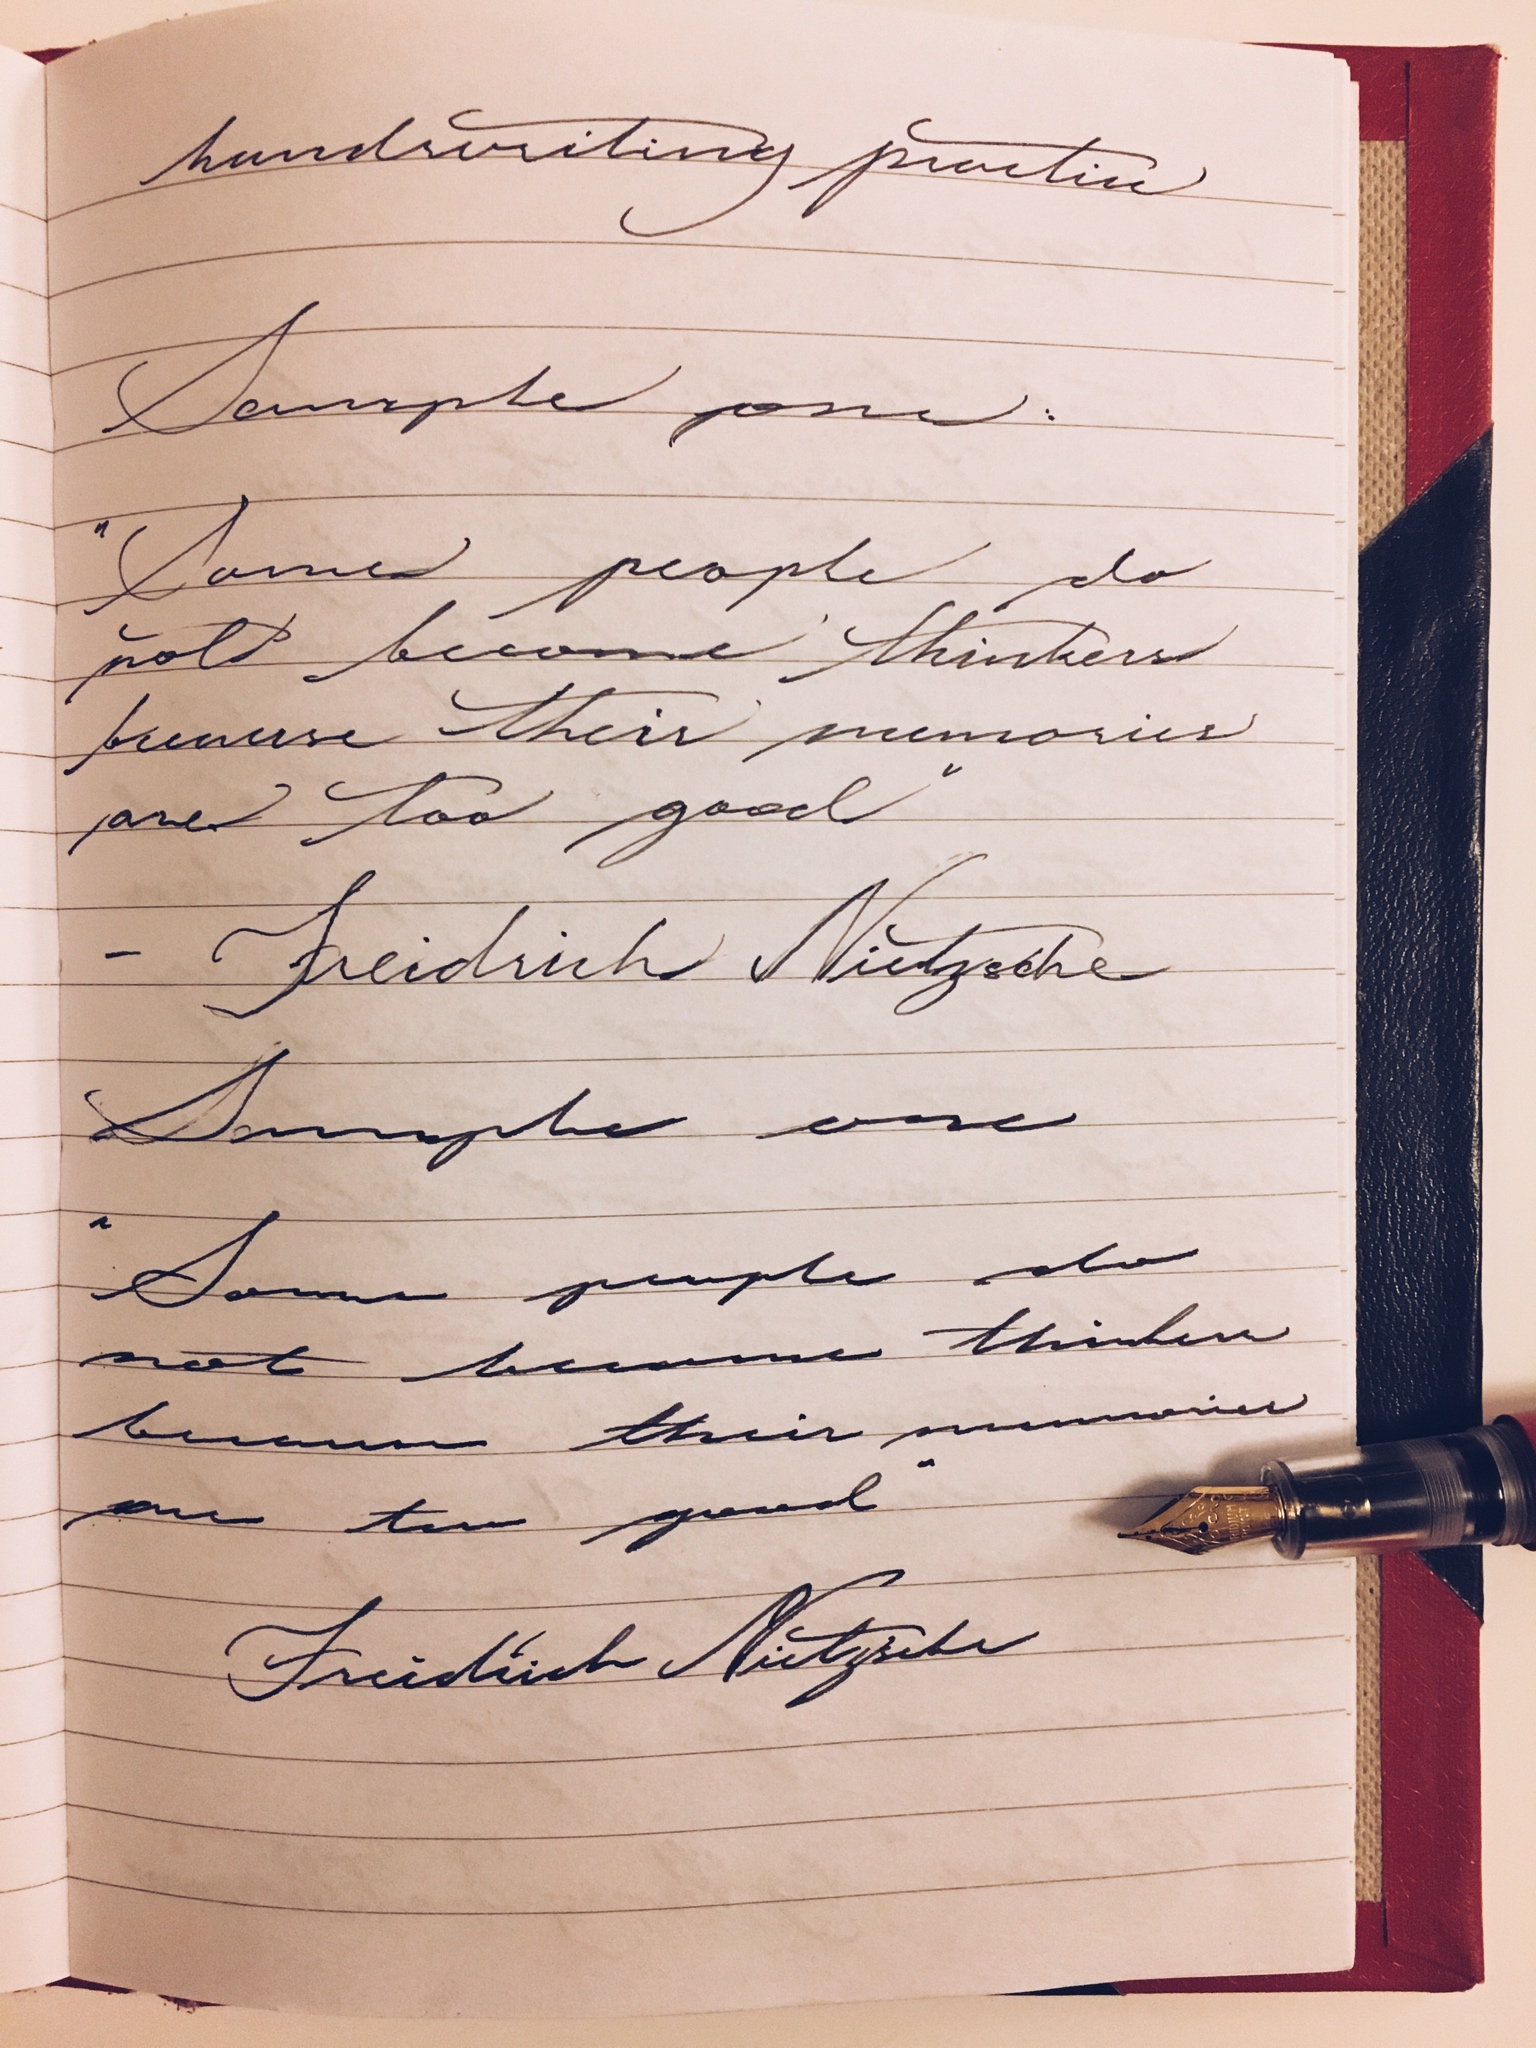 handwriting practice
Sample one:
"Some people do
not become thinkers
because their memories
are too good"
- Freidrich Nietzsche
Sample one
"Some people do
not become thinkers
because their memories
are too good"
Freidrich Nietzsche